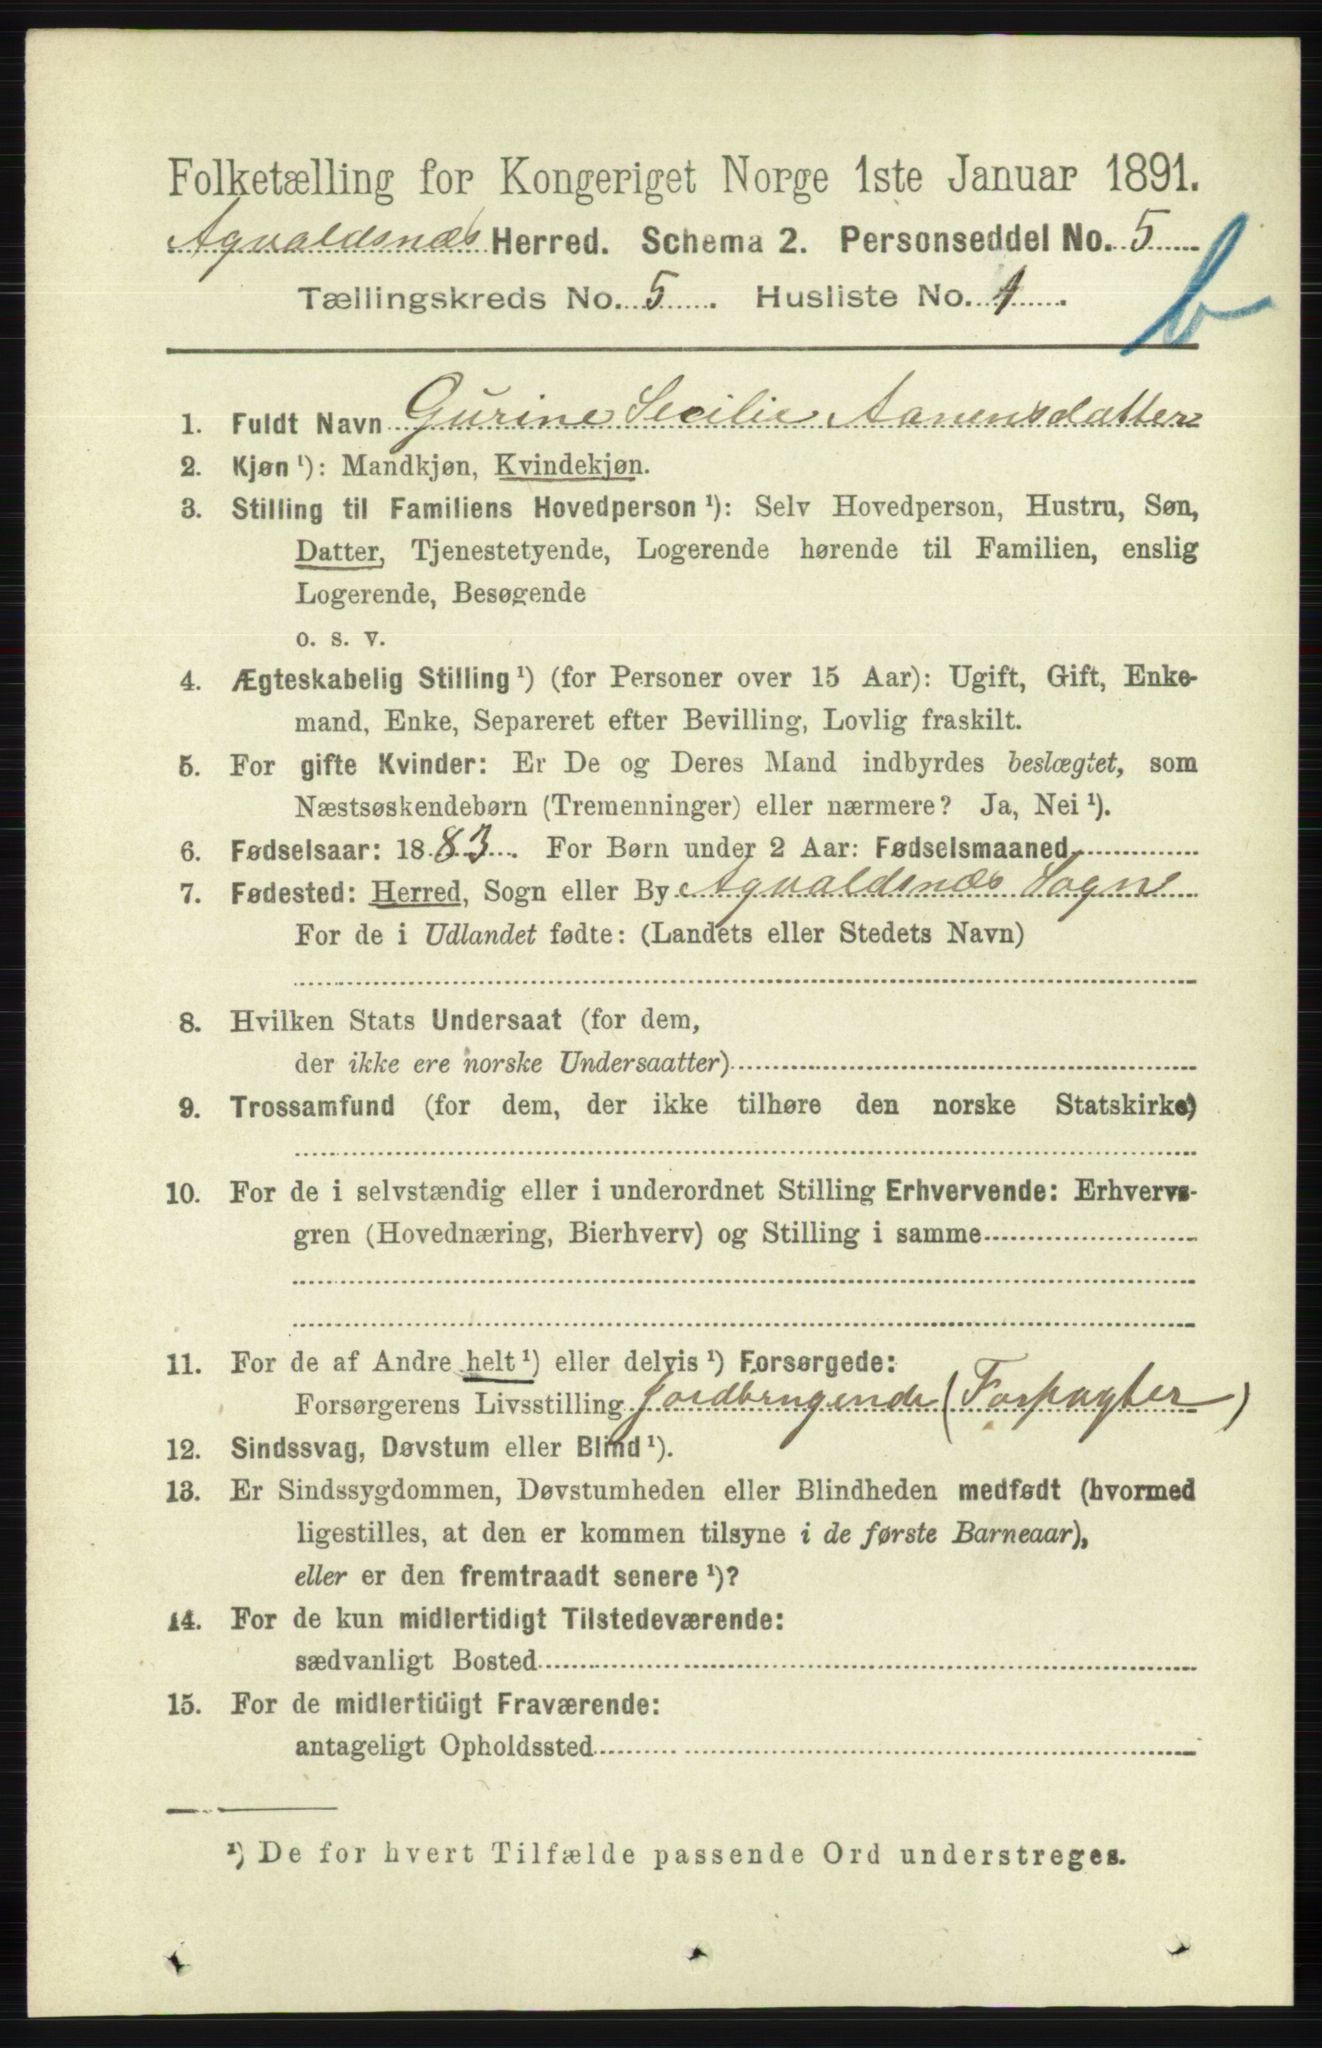 Folketælling for Kongeriget Norge 1ste Januar 1891.
Agvaldsnæs Herred. Schema 2. Personseddel No. 5
Tællingskreds No. 5. Husliste No. 1.
b
1. Fuldt Navn Gurine Secilie Aanensdatter
2. Kjøn ¹): Mandkjøn, Kvindekjøn.
3. Stilling til Familiens Hovedperson ¹): Selv Hovedperson, Hustru, Søn,
Datter, Tjenestetyende, Logerende hørende til Familien, enslig
Logerende, Besøgende
o. s. v.
4. Ægteskabelig Stilling ¹) (for Personer over 15 Aar): Ugift, Gift, Enke-
mand, Enke, Separeret efter Bevilling, Lovlig fraskilt.
5. For gifte Kvinder: Er De og Deres Mand indbyrdes beslægtet, som
Næstsøskendebørn (Tremenninger) eller nærmere? Ja, Nei ¹).
6. Fødselsaar: 1883. For Børn under 2 Aar: Fødselsmaaned
7. Fødested: Herred, Sogn eller By Agvaldsnæs Sogn
For de i Udlandet fødte: (Landets eller Stedets Navn)
8. Hvilken Stats Undersaat (for dem,
der ikke ere norske Undersaatter)
9. Trossamfund (for dem, der ikke tilhøre den norske Statskirke)
10. For de i selvstændig eller i underordnet Stilling Erhvervende: Erhvervs-
gren (Hovednæring, Bierhverv) og Stilling i samme
11. For de af Andre helt ¹) eller delvis ¹) Forsørgede:
Forsørgerens Livsstilling Jordbrugende (Forpagter)
12. Sindssvag, Døvstum eller Blind ¹).
13. Er Sindssygdommen, Døvstumheden eller Blindheden medfødt (hvormed
ligestilles, at den er kommen tilsyne i de første Barneaar),
eller er den fremtraadt senere ¹)?
14. For de kun midlertidigt Tilstedeværende:
sædvanligt Bosted
15. For de midlertidigt Fraværende:
antageligt Opholdssted
¹) De for hvert Tilfælde passende Ord understreges.